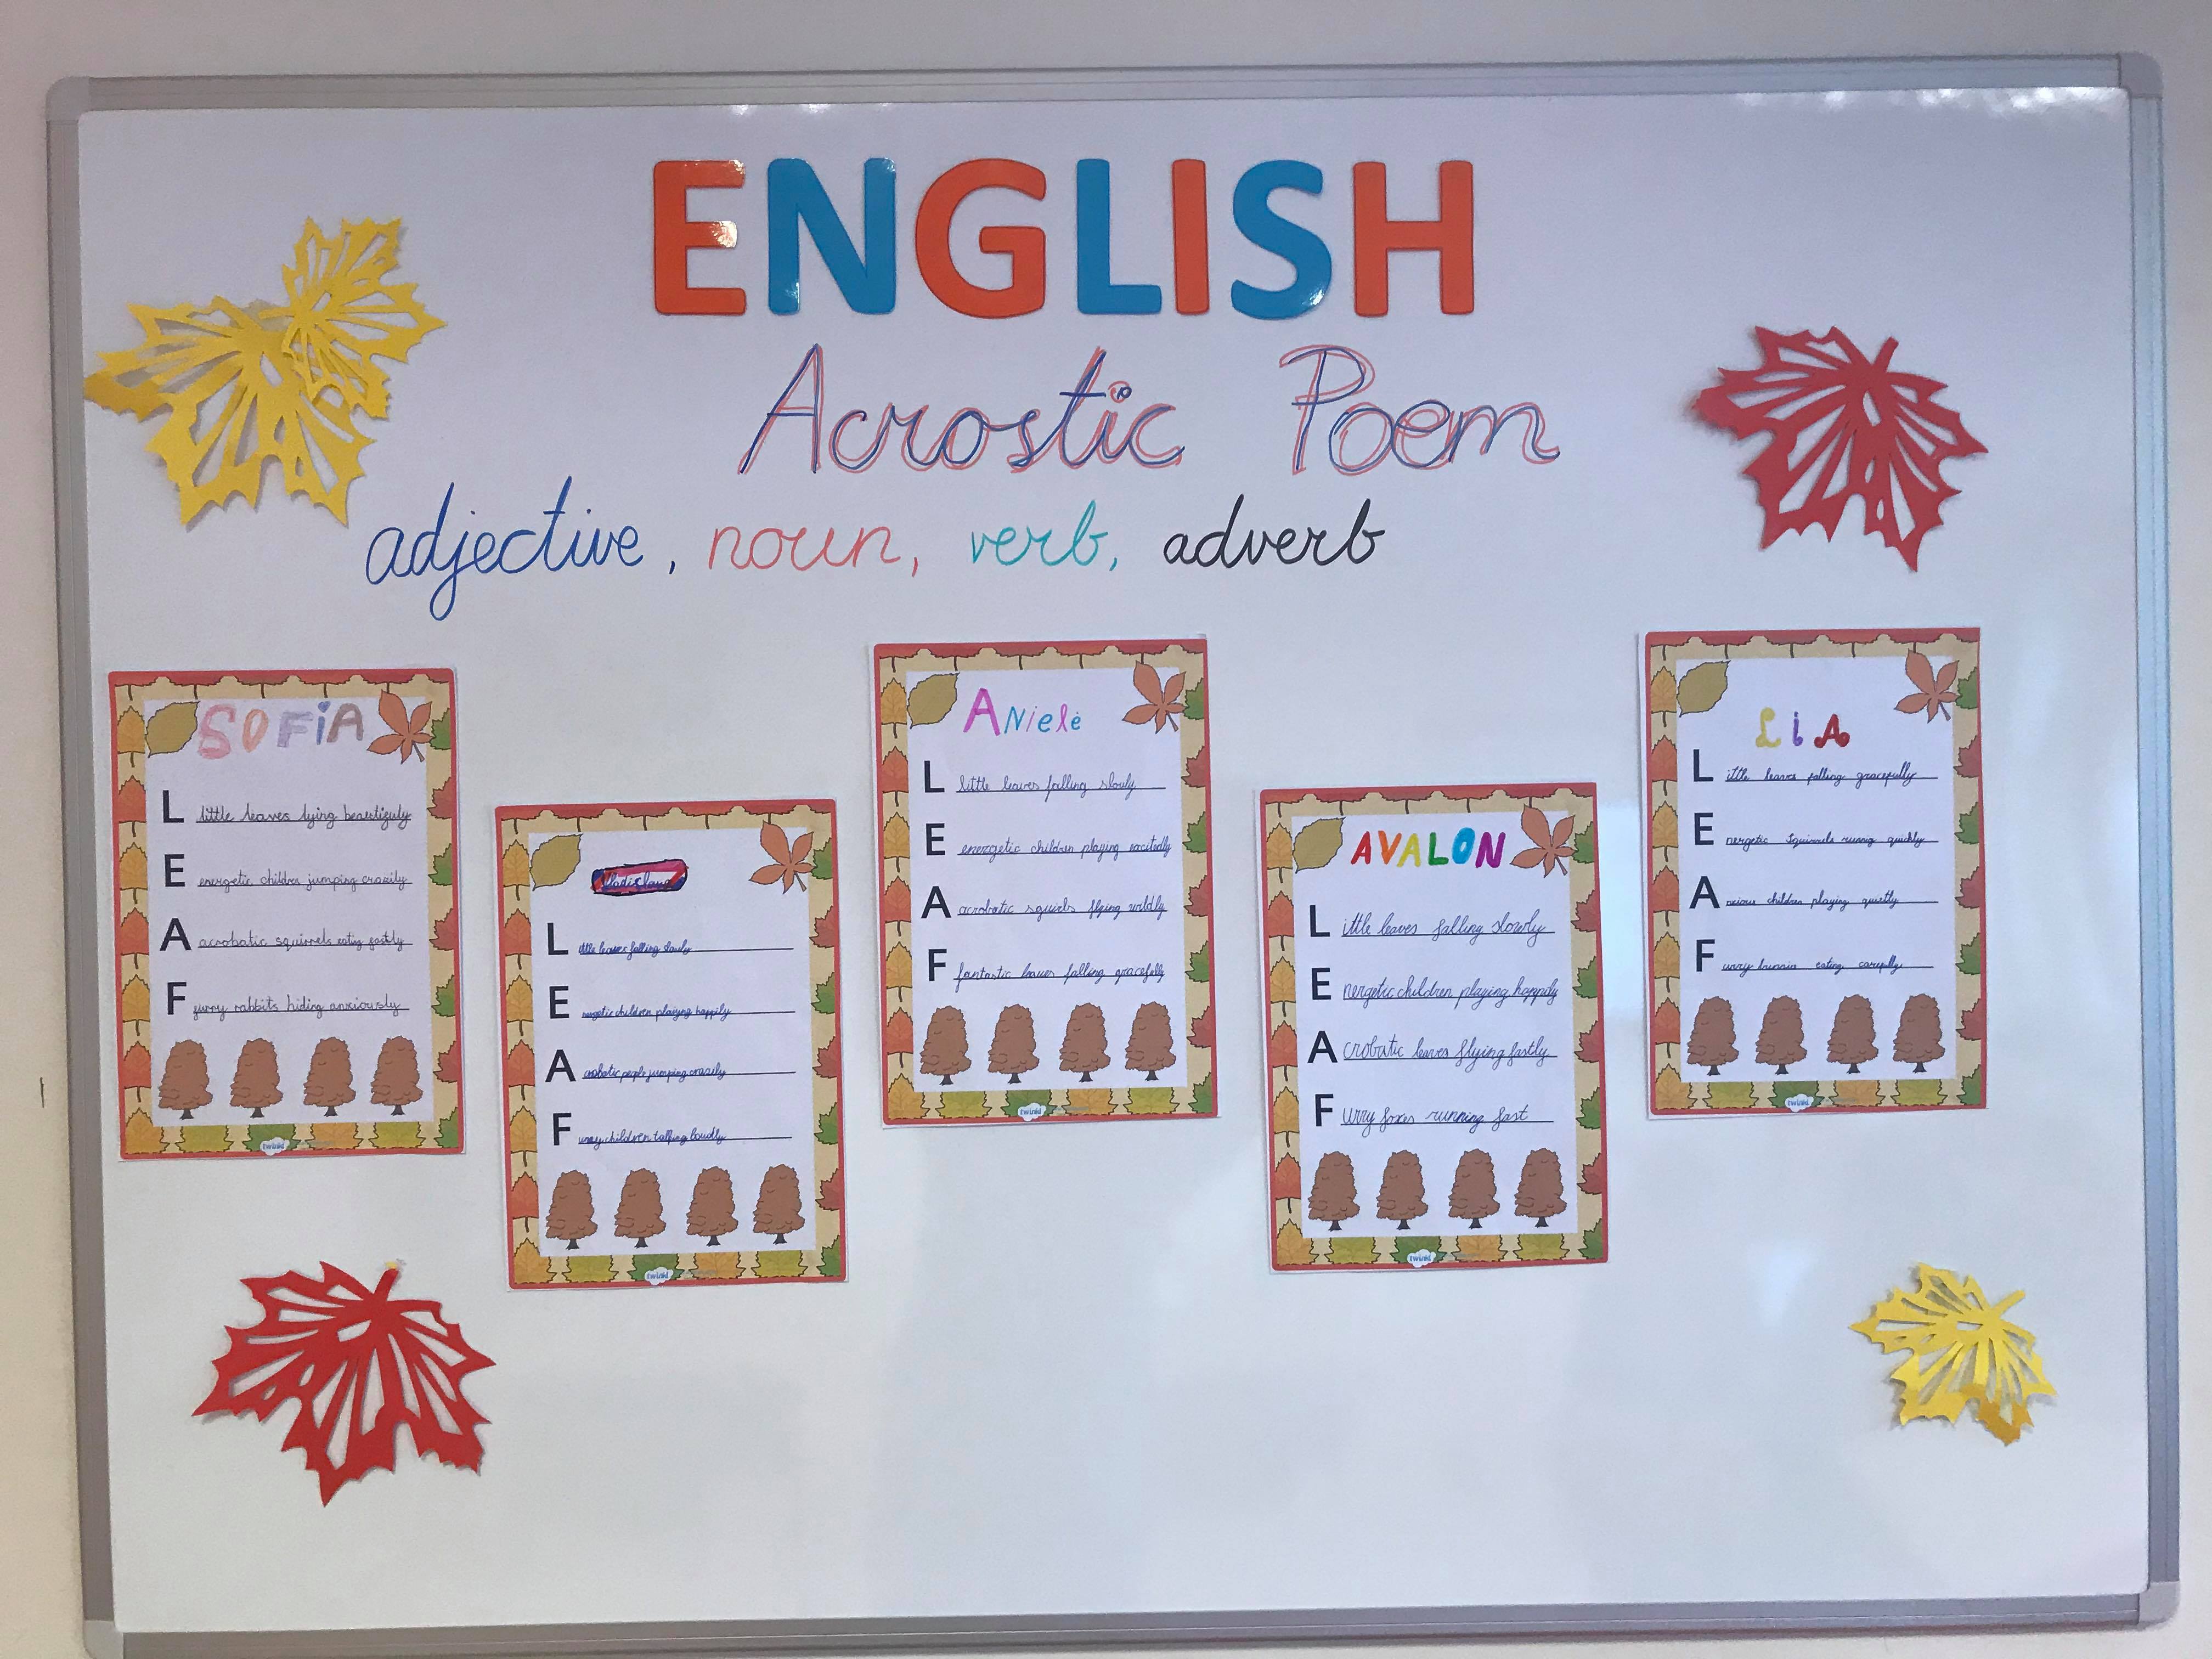 ENGLISH
Acrostic Poem
adjective, noun, verb, adverb
SOFiA
L little leaves lying beautifuly
E energetic children jumping crazily
A acrobatic squirrels eating fastly
F furry rabbits hiding anxiously
twinkl
L ittle leaves falling slowly
E nergetic children playing happily
A crobatic people jumping crazily
F urry children talking loudly
twinkl
ANielė
L little leaves falling slowly
E energetic children playing excitedly
A acrobatic squirels flying wildly
F fantastic leaves falling gracefully
twinkl
AVALON
L ittle leaves falling slowly
E nergetic children playing happily
A crobatic leaves flying fastly
F urry foxes running fast
twinkl
LiA
L ittle leaves falling gracefully
E nergetic squirrels runnig quickly
A nxious children playing quietly
F urry eating carefully
twinkl